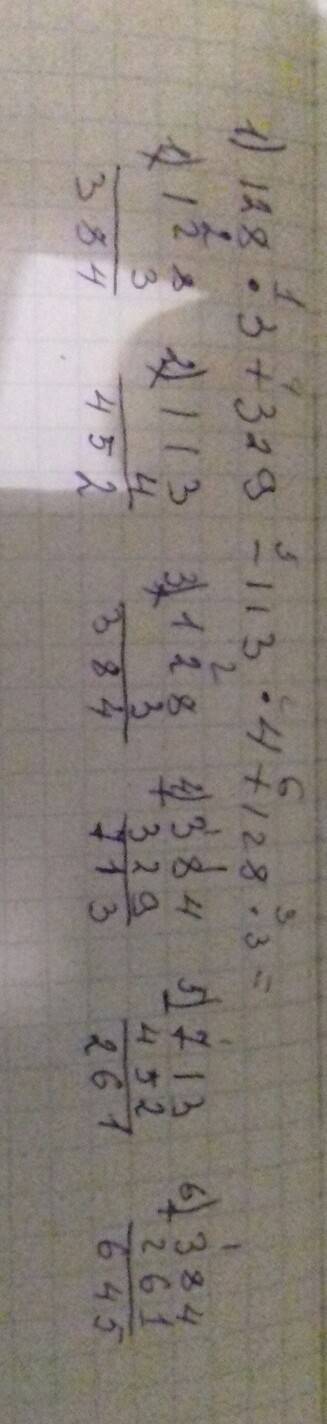 1) 128 · 3 + 329 - 113 · 4 + 128 · 3 =
1 4 5 2 6 3
1) 128 × 3 = 384
2) 113 × 4 = 452
3) 128 × 3 = 384
4) 384 + 329 = 713
5) 713 - 452 = 261
6) 384 + 261 = 645